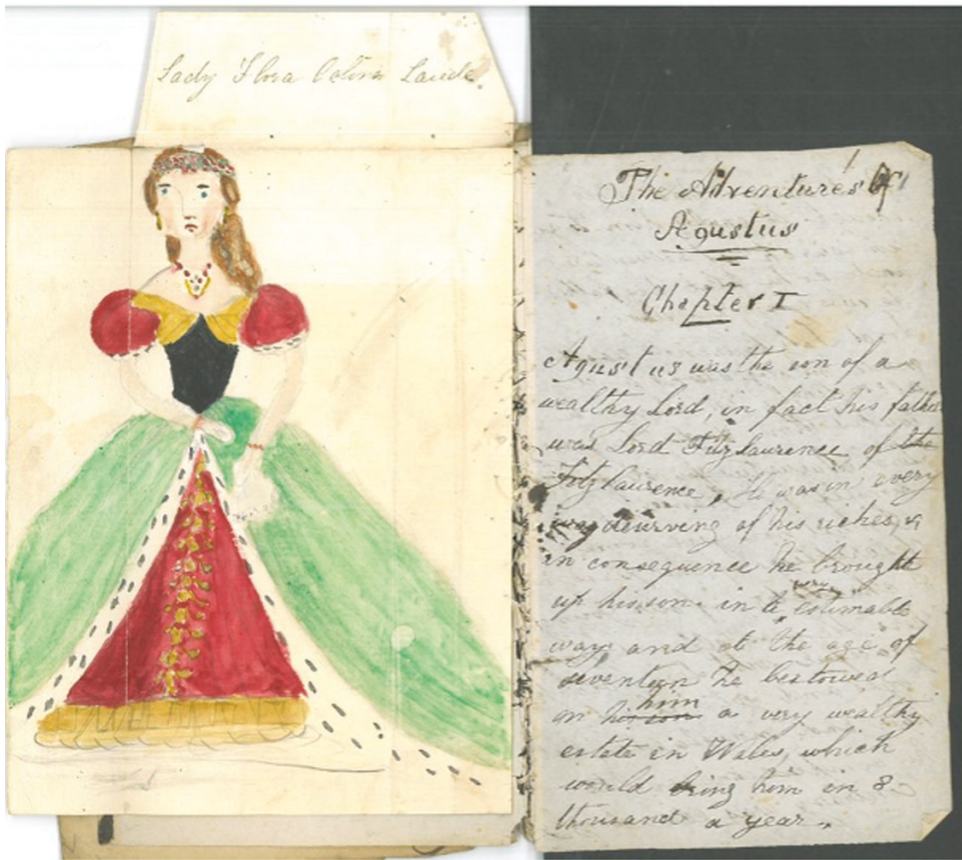 Lady Flora
The Adventures of
Agustus
Chapter I
Agustus was the son of a
wealthy Lord, in fact his father
was Lord Fitzlaurence of the
Fitzlaurence, He was in every
way deserving of his riches, &
in consequence he brought
up his son in a very estimable
way and at the age of
seventeen he bestowed
on his son him a very wealthy
estate in Wales, which
would bring him in 8
thousand a year.